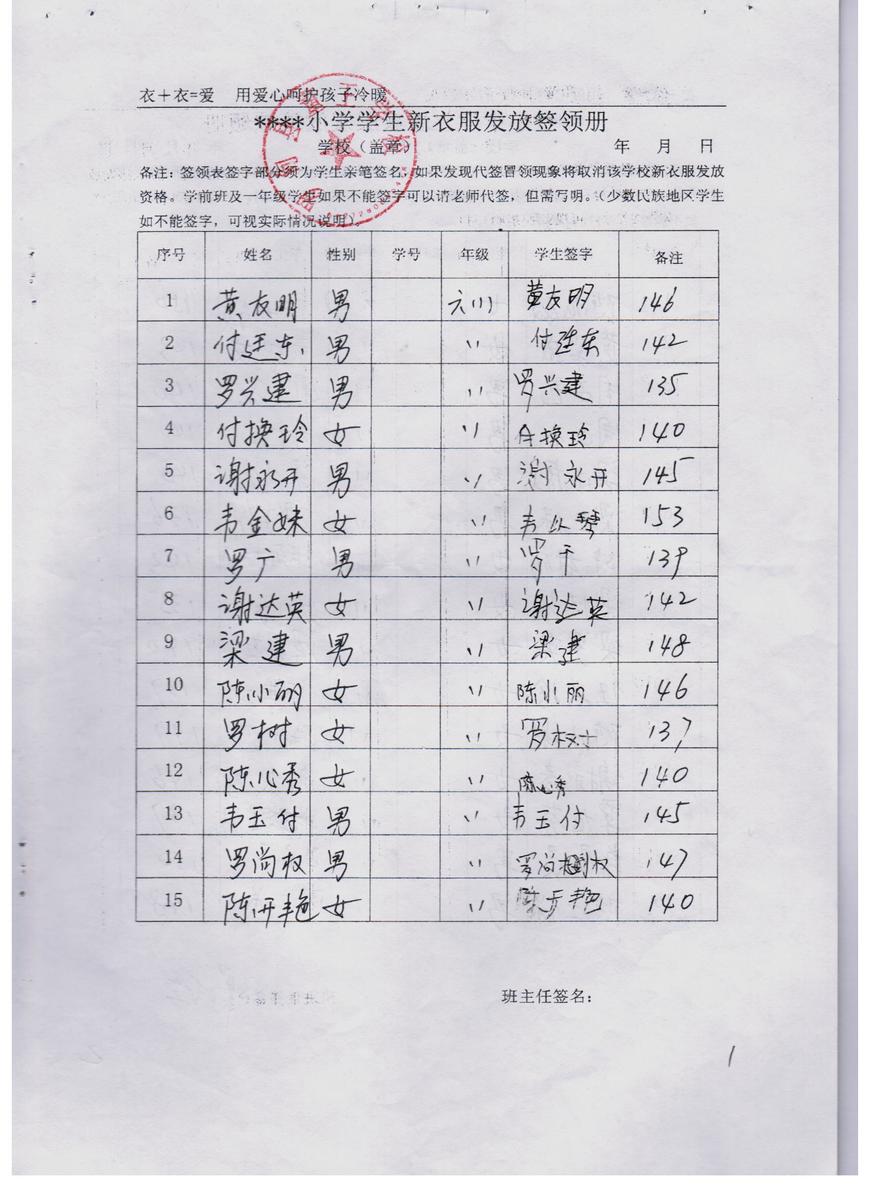 衣＋衣=爱 用爱心呵护孩子冷暖
****小学学生新衣服发放签领册
学校（盖章） 年 月 日
备注：签领表签字部分须为学生亲笔签名，如果发现代签冒领现象将取消该学校新衣服发放
资格。学前班及一年级学生如果不能签字可以请老师代签，但需写明。（少数民族地区学生
如不能签字，可视实际情况说明）
序号 姓名 性别 学号 年级 学生签字 备注
1 黄友明 男 六(1) 黄友明 146
2 付廷东 男 〃 付廷东 142
3 罗兴建 男 〃 罗兴建 135
4 付换玲 女 〃 付换玲 140
5 谢永开 男 〃 谢永开 145
6 韦金妹 女 〃 韦 153
7 罗广 男 〃 罗 139
8 谢达英 女 〃 谢达英 142
9 梁建 男 〃 梁建 148
10 陈小丽 女 〃 陈小丽 146
11 罗树 女 〃 罗树 137
12 陈心秀 女 〃 陈心秀 140
13 韦玉付 男 〃 韦玉付 145
14 罗尚权 男 〃 罗尚权 147
15 陈开艳 女 〃 陈开艳 140
班主任签名：
1